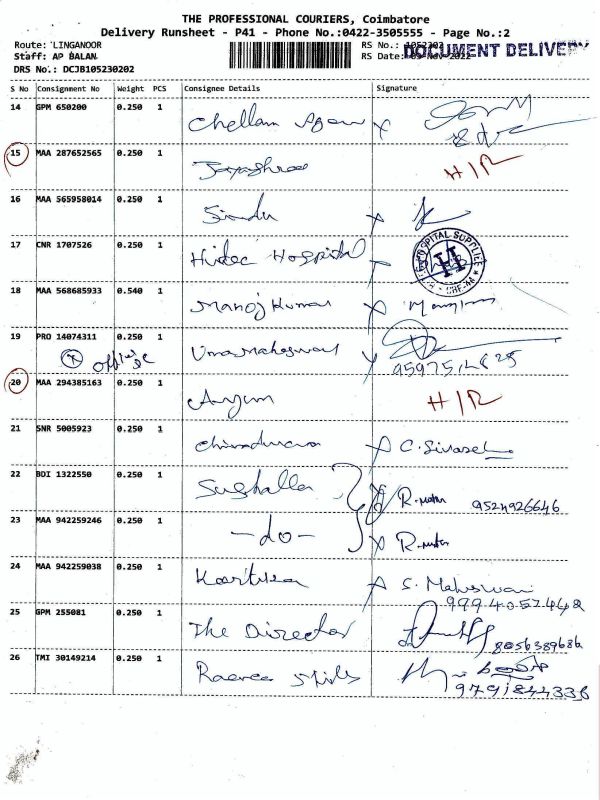 THE PROFESSIONAL COURIERS, Coimbatore
Delivery Runsheet - P41 - Phone No.:0422-3505555 - Page No.:2
Route: LINGANOOR
RS No.:
DOCUMENT DELIVERY
Staff: AP BALAN
RS Date: 09-Nov-2022
DRS No.: DCJB105230202
S No Consignment No Weight PCS Consignee Details Signature
14 GPM 650200 0.250 1 Chellam
15 MAA 287652565 0.250 1 Jayashree H/R
16 MAA 565958014 0.250 1 Sindu
17 CNR 1707526 0.250 1 Hitec Hospital
HOSPITAL SUPPLIES
H
18 MAA 568685933 0.540 1 Manoj Kumar
19 PRO 14074311 0.250 1 Umamaheswari
office
20 MAA 294385163 0.250 1 Anjum H/R
21 SNR 5005923 0.250 1 C. Sivasel
22 BDI 1322550 0.250 1 9524926646
23 MAA 942259246 0.250 1 -do-
24 MAA 942259038 0.250 1 S. Maheswari
25 GPM 255081 0.250 1 The Director
8056389686
26 TMI 30149214 0.250 1
9791844336